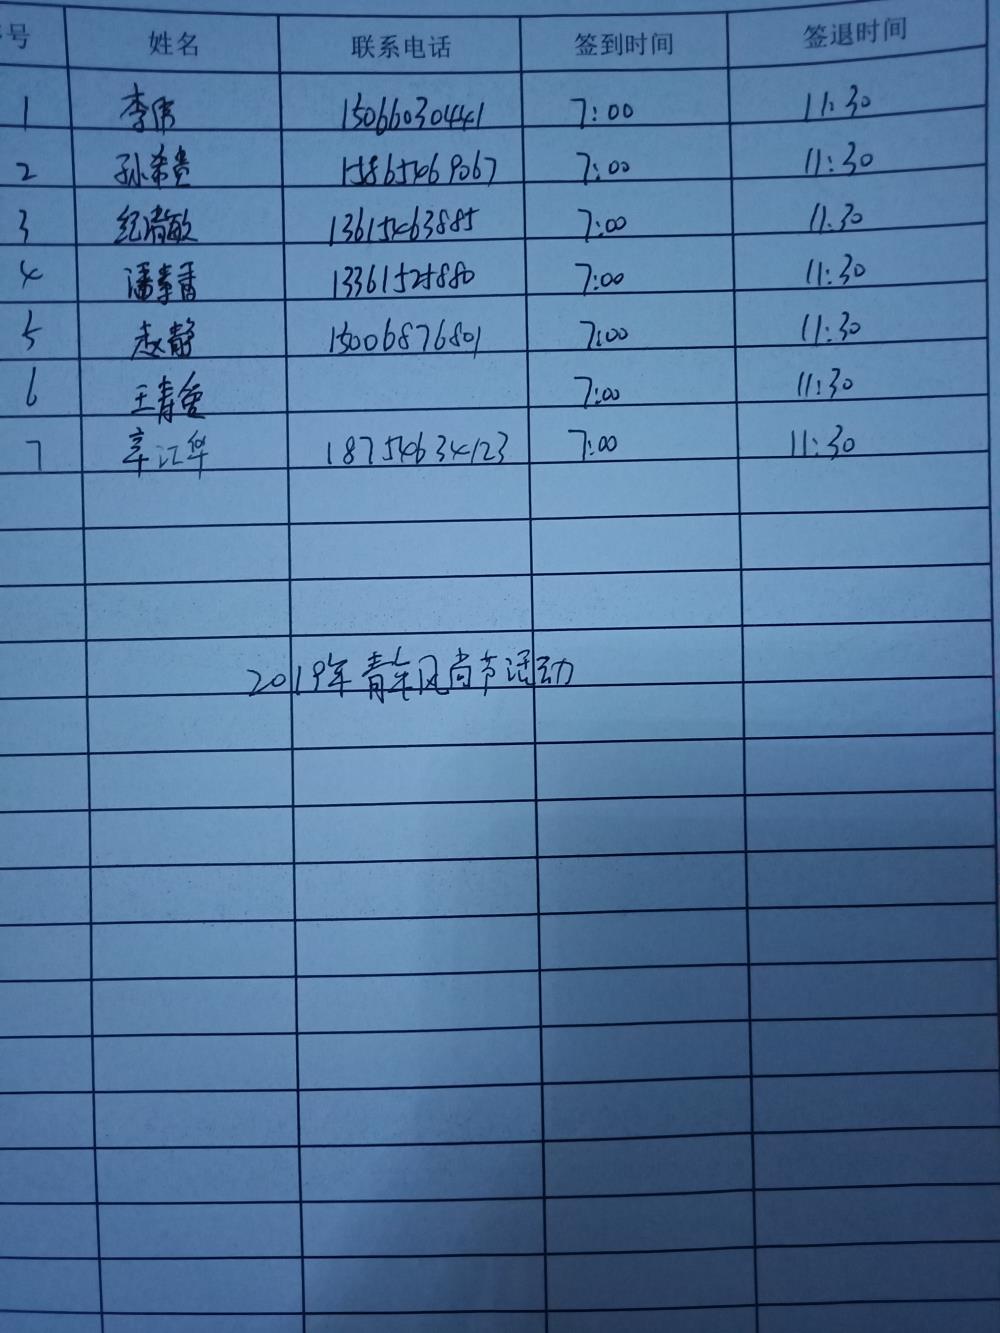 号 姓名 联系电话 签到时间 签退时间
1 李伟 15066030441 7:00 11:30
2 孙希贵 15865469067 7:00 11:30
3 纪清敏 13615463885 7:00 11:30
4 潘季香 13361525880 7:00 11:30
5 赵静 15006876801 7:00 11:30
6 王青 7:00 11:30
7 辛江华 18754634123 7:00 11:30
2019年青年风尚节活动